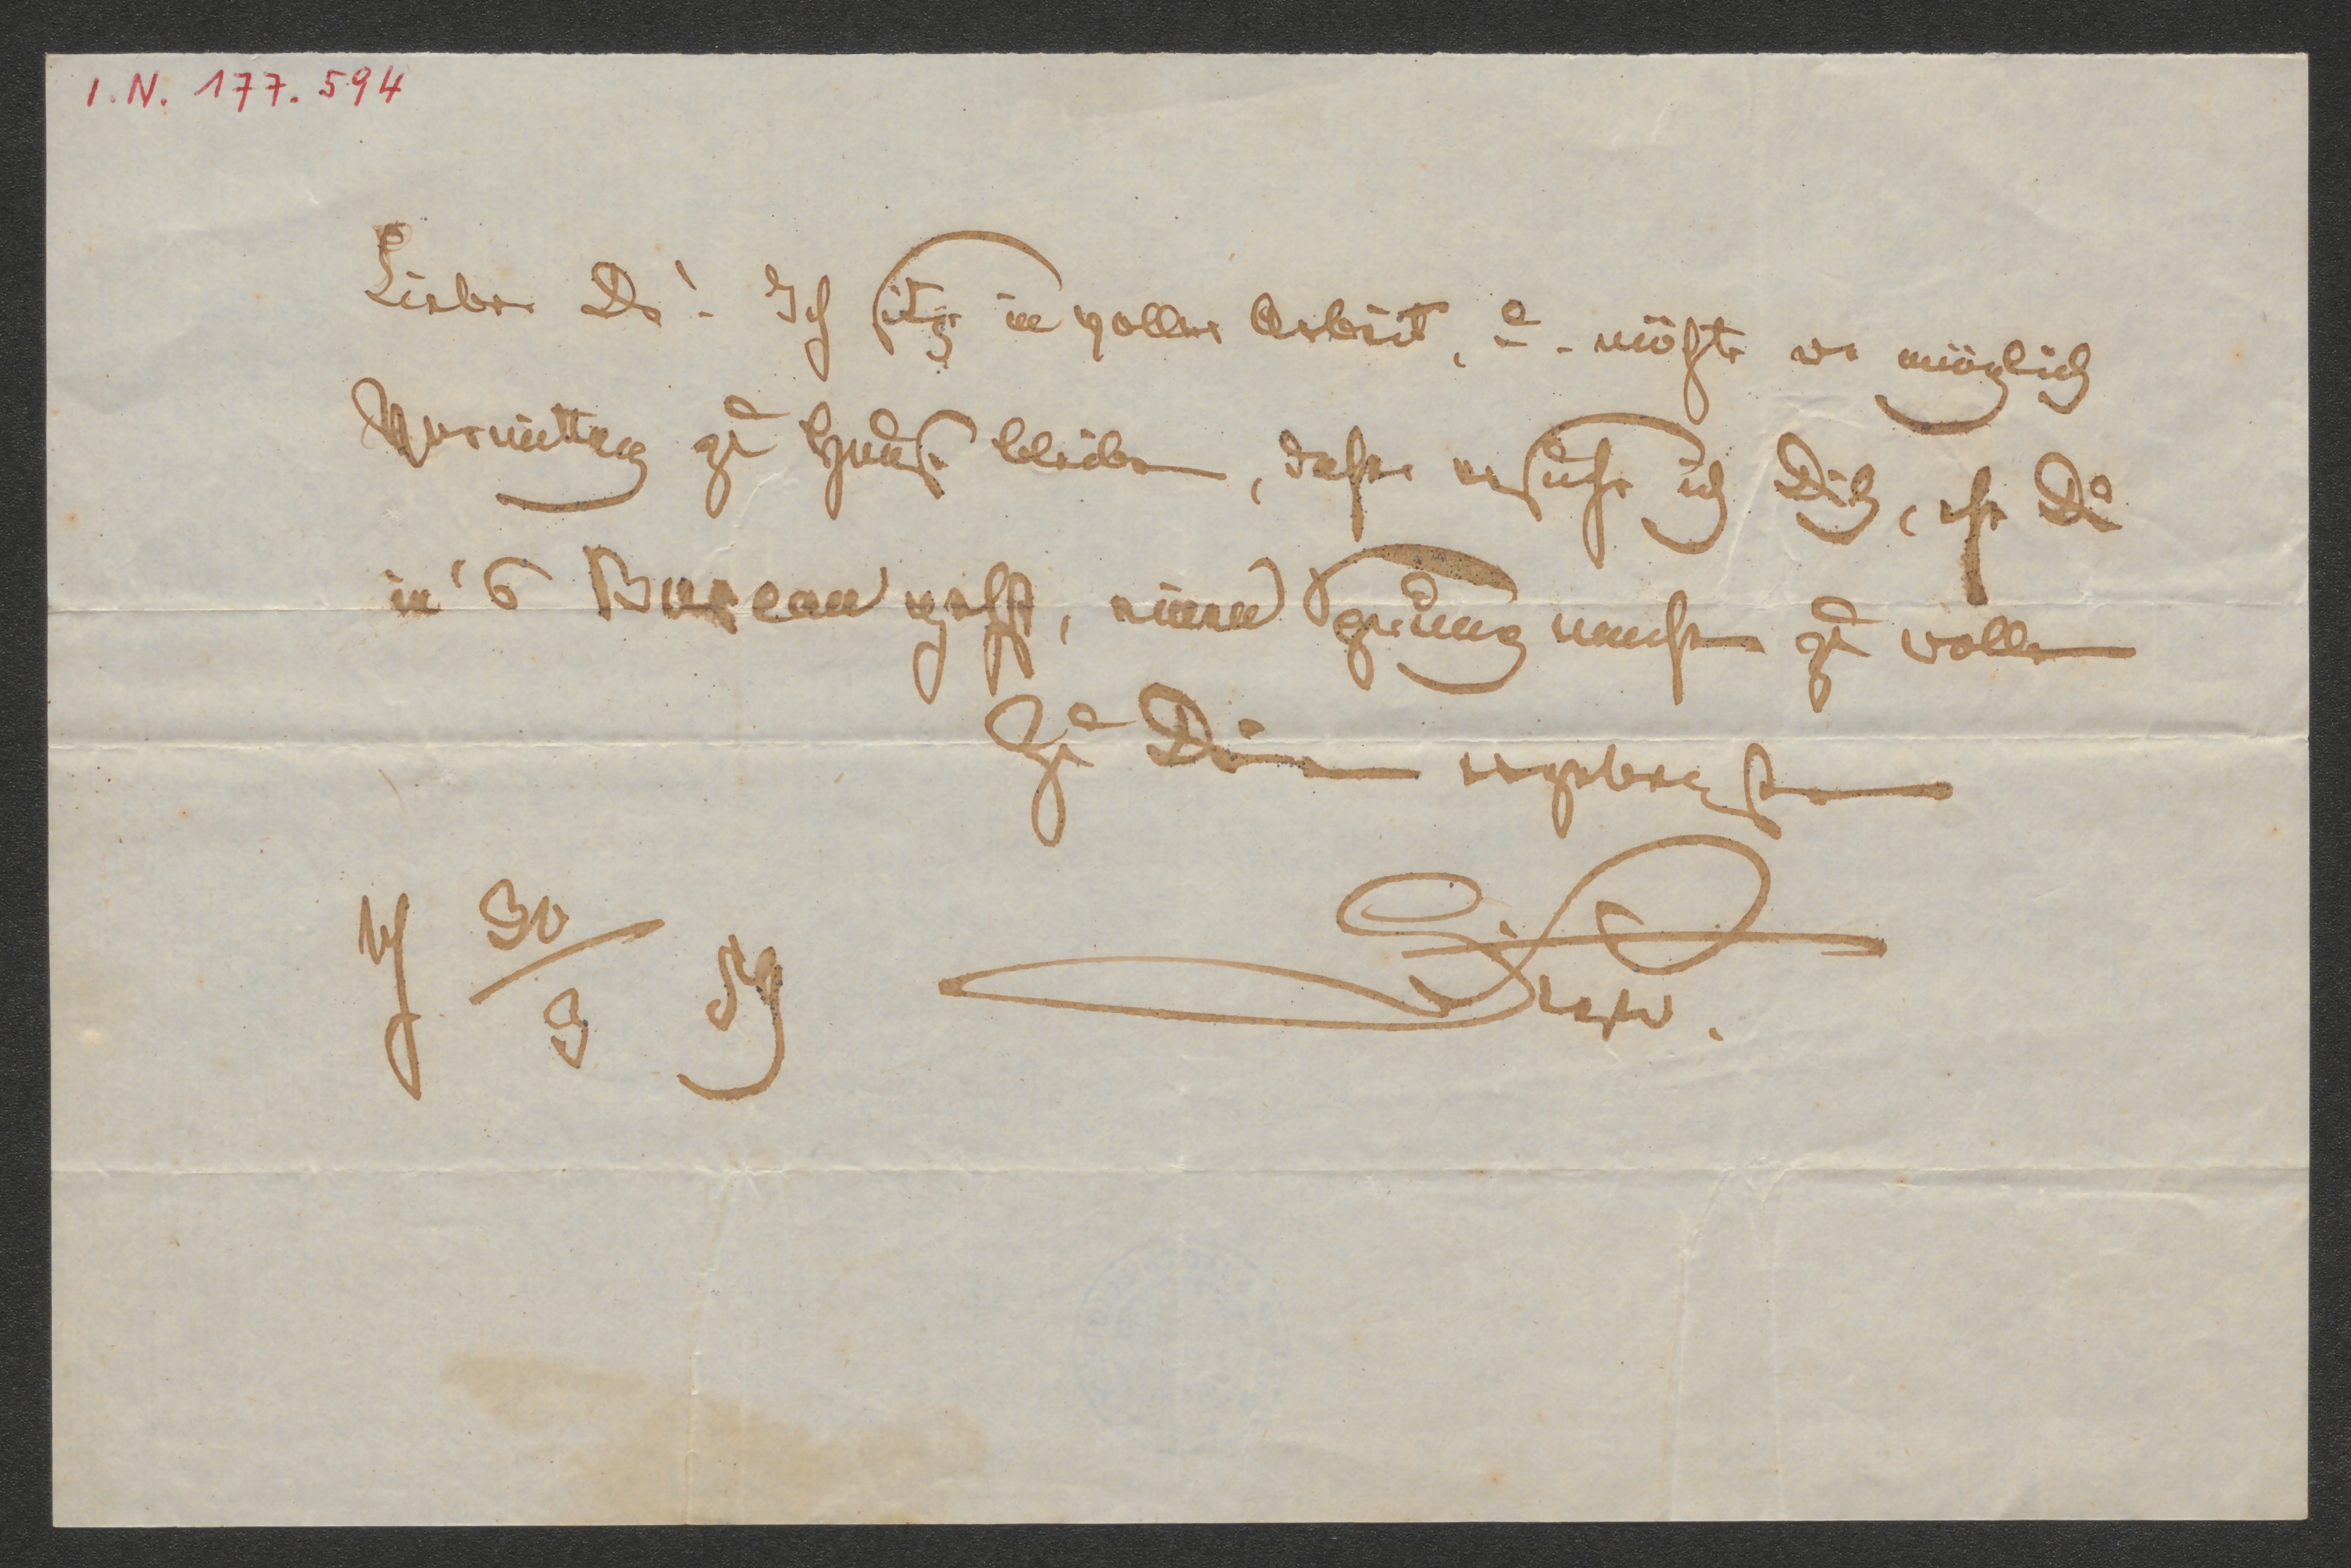 I. N. 177.594
Lieber Dr! Ich sitze in voller Arbeit, u. möchte wo möglich
Vormittag zu Hause bleiben, daher ersuche ich Dich, ehe Du
in's Bureau gehst, einen Sprung machen zu wollen
Zu Deinem ergebensten
30/3 59